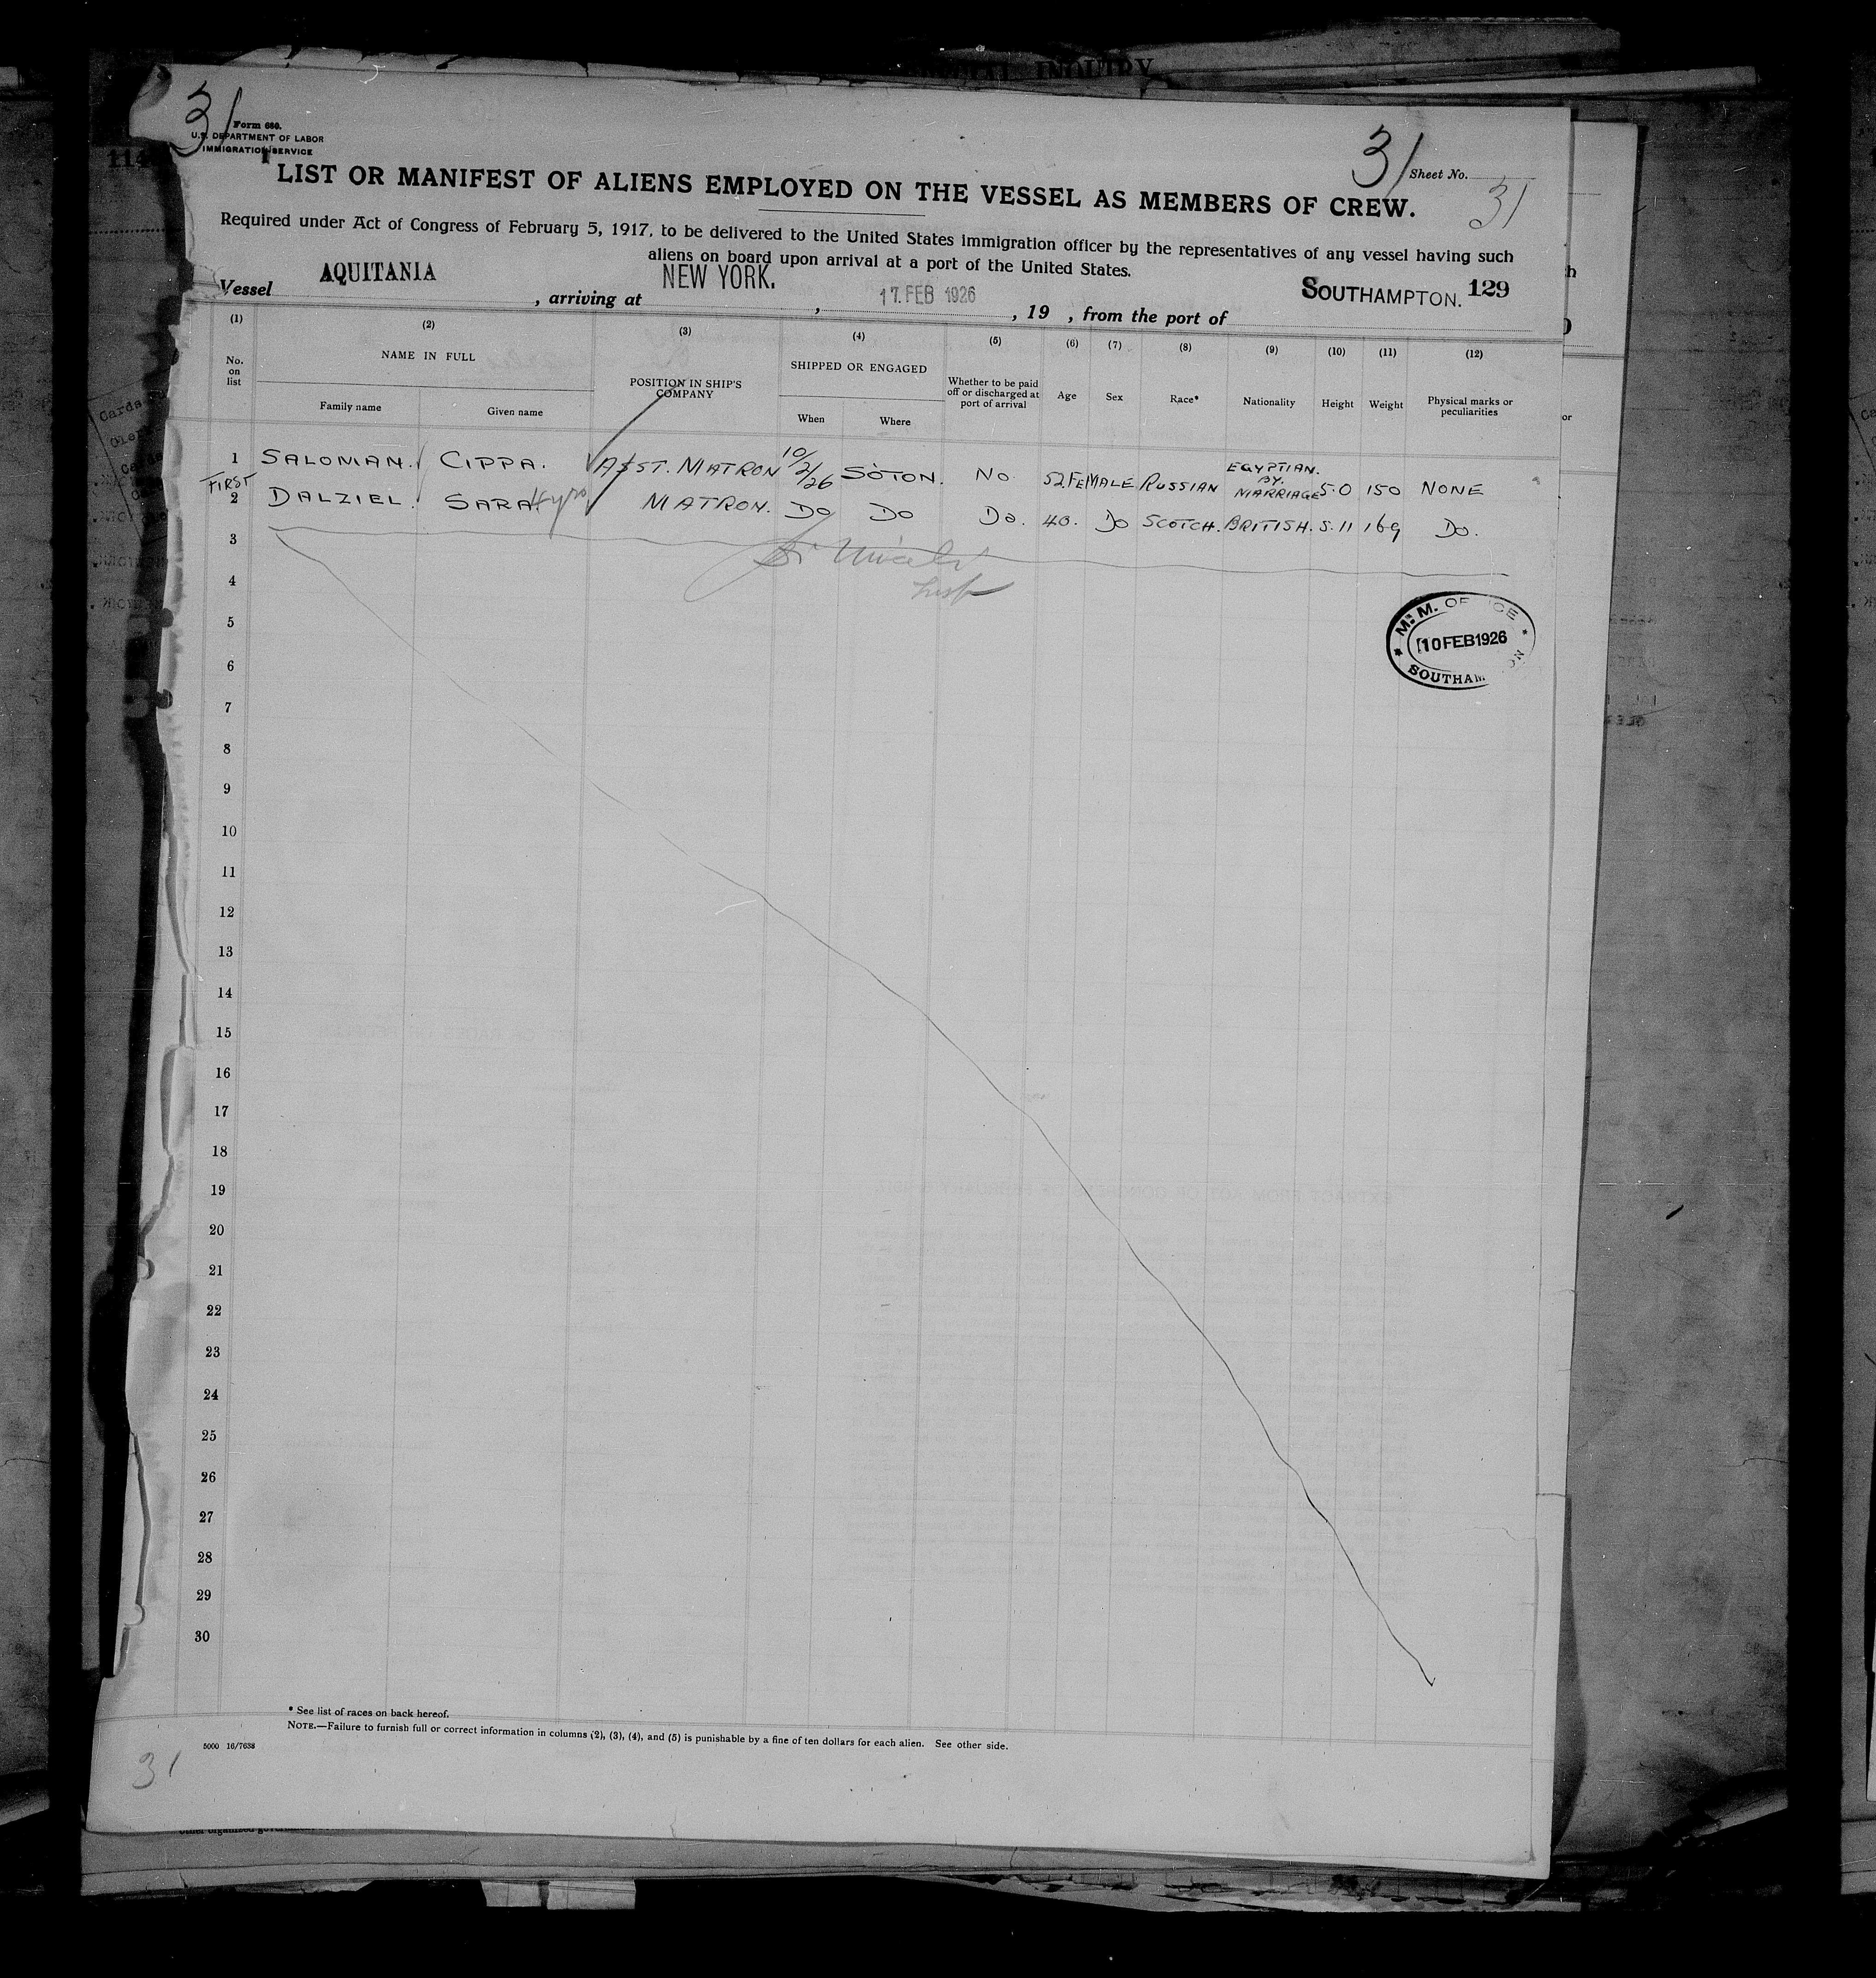 31
Form 680.
U.S. DEPARTMENT OF LABOR
IMMIGRATION SERVICE
31 Sheet No.
31
LIST OR MANIFEST OF ALIENS EMPLOYED ON THE VESSEL AS MEMBERS OF CREW.
Required under Act of Congress of February 5, 1917, to be delivered to the United States immigration officer by the representatives of any vessel having such
aliens on board upon arrival at a port of the United States.
Vessel AQUITANIA, arriving at NEW YORK., 17. FEB 1926, 19 , from the port of SOUTHAMPTON. 129
(1) (2) (3) (4) (5) (6) (7) (8) (9) (10) (11) (12)
No. on list NAME IN FULL Family name Given name POSITION IN SHIP'S COMPANY SHIPPED OR ENGAGED When Where Whether to be paid off or discharged at port of arrival Age Sex Race* Nationality Height Weight Physical marks or peculiarities
1 SALOMAN. CIPPA. ASST. MATRON 10/2/26 SOTON. NO. 52 FEMALE RUSSIAN EGYPTIAN. BY. MARRIAGE 5.0 150 NONE
FIRST
2 DALZIEL. SARA. 4 yrs MATRON. DO DO DO. 40. DO SCOTCH. BRITISH. 5.11 169 DO.
3
4
5
6
7
8
9
10
11
12
13
14
15
16
17
18
19
20
21
22
23
24
25
26
27
28
29
30
M.M. OFFICE
10 FEB 1926
SOUTHAMPTON
* See list of races on back hereof.
NOTE.—Failure to furnish full or correct information in columns (2), (3), (4), and (5) is punishable by a fine of ten dollars for each alien. See other side.
5000 16/7638
31